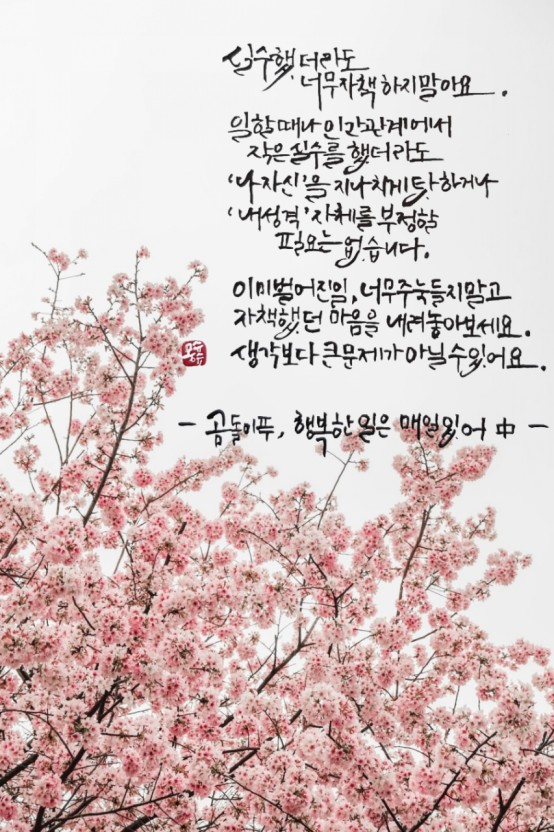 실수했더라도
너무자책하지말아요.
일할때나 인간관계에서
작은실수를 했더라도
'나자신'을 지나치게탓하거나
'내성격'자체를 부정할
필요는 없습니다.
이미벌어진일, 너무주눅들지말고
자책했던 마음을 내려놓아보세요.
생각보다 큰문제가 아닐수있어요.
- 곰돌이푸, 행복한 일은 매일있어 中 -